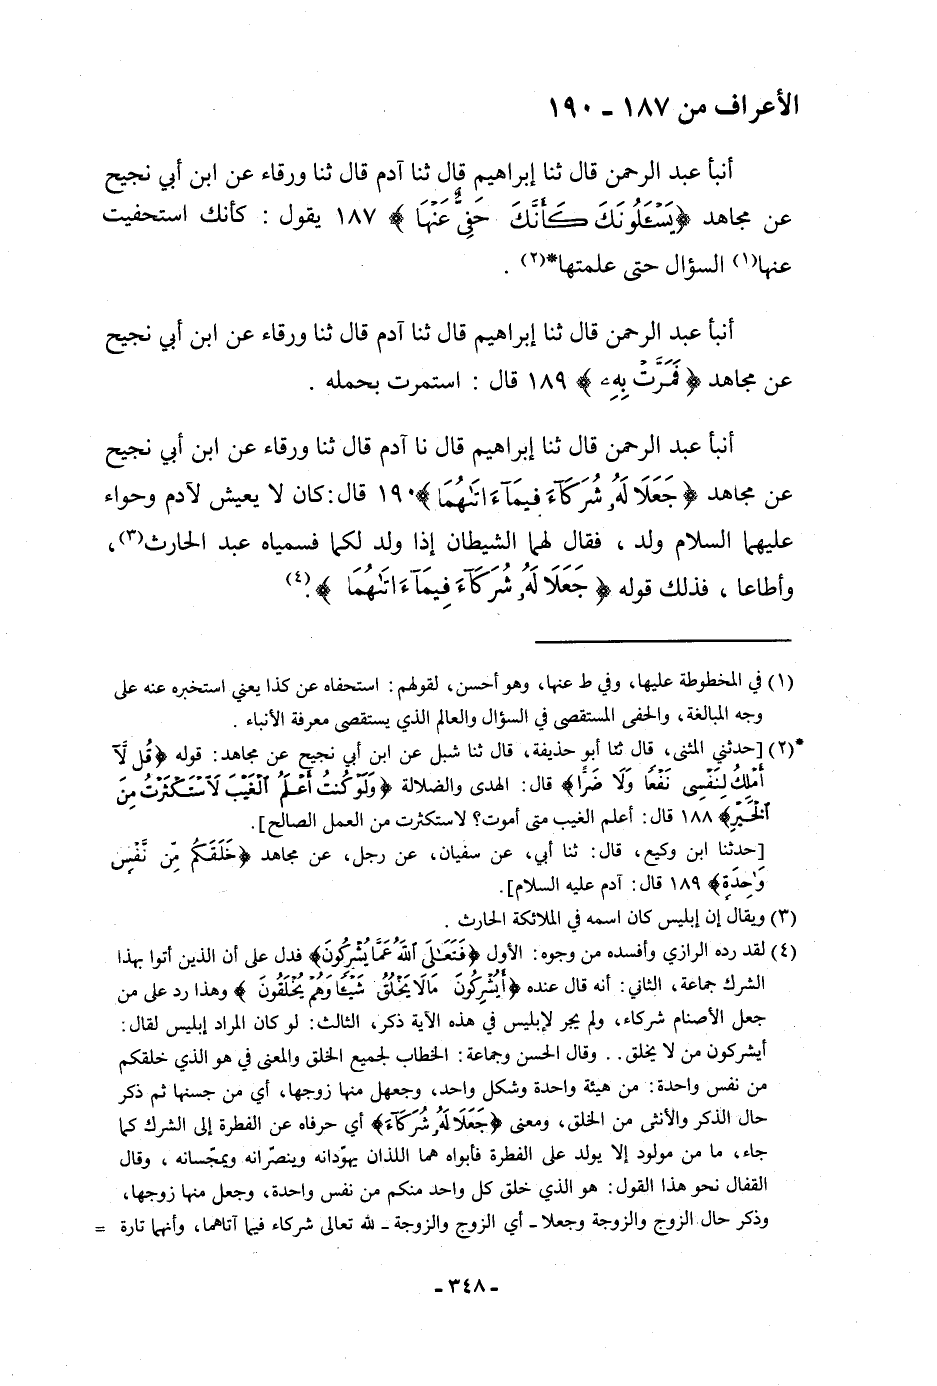 الأعراف من ١٨٧ - ١٩٠
أنبأ عبد الرحمن قال ثنا إبراهيم قال ثنا آدم قال ثنا ورقاء عن ابن أبي نجيح
عن مجاهد ﴿يَسْـَٔلُونَكَ كَأَنَّكَ حَفِىٌّ عَنْهَا﴾ ١٨٧ يقول : كأنك استحفيت
عنها(١) السؤال حتى علمتها*(٢) .
أنبأ عبد الرحمن قال ثنا إبراهيم قال ثنا آدم قال ثنا ورقاء عن ابن أبي نجيح
عن مجاهد ﴿فَمَرَّتْ بِهِۦ﴾ ١٨٩ قال : استمرت بحمله .
أنبأ عبد الرحمن قال ثنا إبراهيم قال نا آدم قال ثنا ورقاء عن ابن أبي نجيح
عن مجاهد ﴿جَعَلَا لَهُۥ شُرَكَآءَ فِيمَآ ءَاتَىٰهُمَا﴾ ١٩٠ قال:كان لا يعيش لآدم وحواء
عليهما السلام ولد ، فقال لهما الشيطان إذا ولد لكما فسمياه عبد الحارث(٣)،
وأطاعا ، فذلك قوله ﴿جَعَلَا لَهُۥ شُرَكَآءَ فِيمَآ ءَاتَىٰهُمَا﴾.(٤)
(١) في المخطوطة عليها، وفي ط عنها، وهو أحسن، لقولهم: استحفاه عن كذا يعني استخبره عنه على
وجه المبالغة، والحفى المستقصى في السؤال والعالم الذي يستقصى معرفة الأنباء .
*(٢) [حدثني المثنى، قال ثنا أبو حذيفة، قال ثنا شبل عن ابن أبي نجيح عن مجاهد: قوله ﴿قُل لَّآ
أَمْلِكُ لِنَفْسِى نَفْعًا وَلَا ضَرًّا﴾ قال: الهدى والضلالة ﴿وَلَوْ كُنتُ أَعْلَمُ ٱلْغَيْبَ لَٱسْتَكْثَرْتُ مِنَ
ٱلْخَيْرِ﴾ ١٨٨ قال: أعلم الغيب متى أموت؟ لاستكثرت من العمل الصالح].
[حدثنا ابن وكيع، قال: ثنا أبي، عن سفيان، عن رجل، عن مجاهد ﴿خَلَقَكُم مِّن نَّفْسٍ
وَٰحِدَةٍ﴾ ١٨٩ قال: آدم عليه السلام].
(٣) ويقال إن إبليس كان اسمه في الملائكة الحارث .
(٤) لقد رده الرازي وأفسده من وجوه: الأول ﴿فَتَعَٰلَى ٱللَّهُ عَمَّا يُشْرِكُونَ﴾ فدل على أن الذين أتوا بهذا
الشرك جماعة، الثاني: أنه قال عنده ﴿أَيُشْرِكُونَ مَا لَا يَخْلُقُ شَيْـًٔا وَهُمْ يُخْلَقُونَ﴾ وهذا رد على من
جعل الأصنام شركاء، ولم يجر لإبليس في هذه الآية ذكر، الثالث: لو كان المراد إبليس لقال:
أيشركون من لا يخلق.. وقال الحسن وجماعة: الخطاب لجميع الخلق والمعنى في هو الذي خلقكم
من نفس واحدة: من هيئة واحدة وشكل واحد، وجعهل منها زوجها، أي من جسنها ثم ذكر
حال الذكر والأنثى من الخلق، ومعنى ﴿جَعَلَا لَهُۥ شُرَكَآءَ﴾ أي حرفاه عن الفطرة إلى الشرك كما
جاء، ما من مولود إلا يولد على الفطرة فأبواه هما اللذان يهوّدانه وينصّرانه ويمجّسانه ، وقال
القفال نحو هذا القول: هو الذي خلق كل واحد منكم من نفس واحدة، وجعل منها زوجها،
وذكر حال الزوج والزوجة وجعلا - أي الزوج والزوجة - لله تعالى شركاء فيما آتاهما، وأنهما تارة =
- ٣٤٨ -